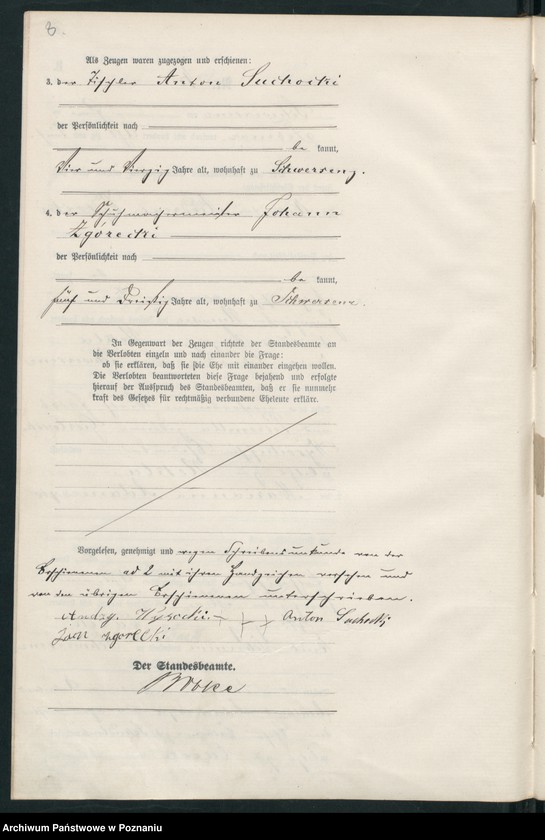 8.
Als Zeugen waren zugezogen und erschienen:
3. der Tischler Anton Suchocki
der Persönlichkeit nach
be kannt,
vier und vierzig Jahre alt, wohnhaft zu Schwersenz.
4. der Schuhmachermeister Johann
Zgórecki
der Persönlichkeit nach
be kannt,
fünf und dreißig Jahre alt, wohnhaft zu Schwersenz.
In Gegenwart der Zeugen richtete der Standesbeamte an
die Verlobten einzeln und nach einander die Frage:
ob sie erklären, daß sie die Ehe mit einander eingehen wollen.
Die Verlobten beantworteten diese Frage bejahend und erfolgte
hierauf der Ausspruch des Standesbeamten, daß er sie nunmehr
kraft des Gesetzes für rechtmäßig verbundene Eheleute erkläre.
Vorgelesen, genehmigt und wegen Schreibensunkunde von der
Erschienenen ad 2 mit ihren Handzeichen versehen und
von den übrigen Erschienenen unterschrieben.
Andrz. +++ Anton Suchocki
Jan Zgorecki
Der Standesbeamte.
Archiwum Państwowe w Poznaniu